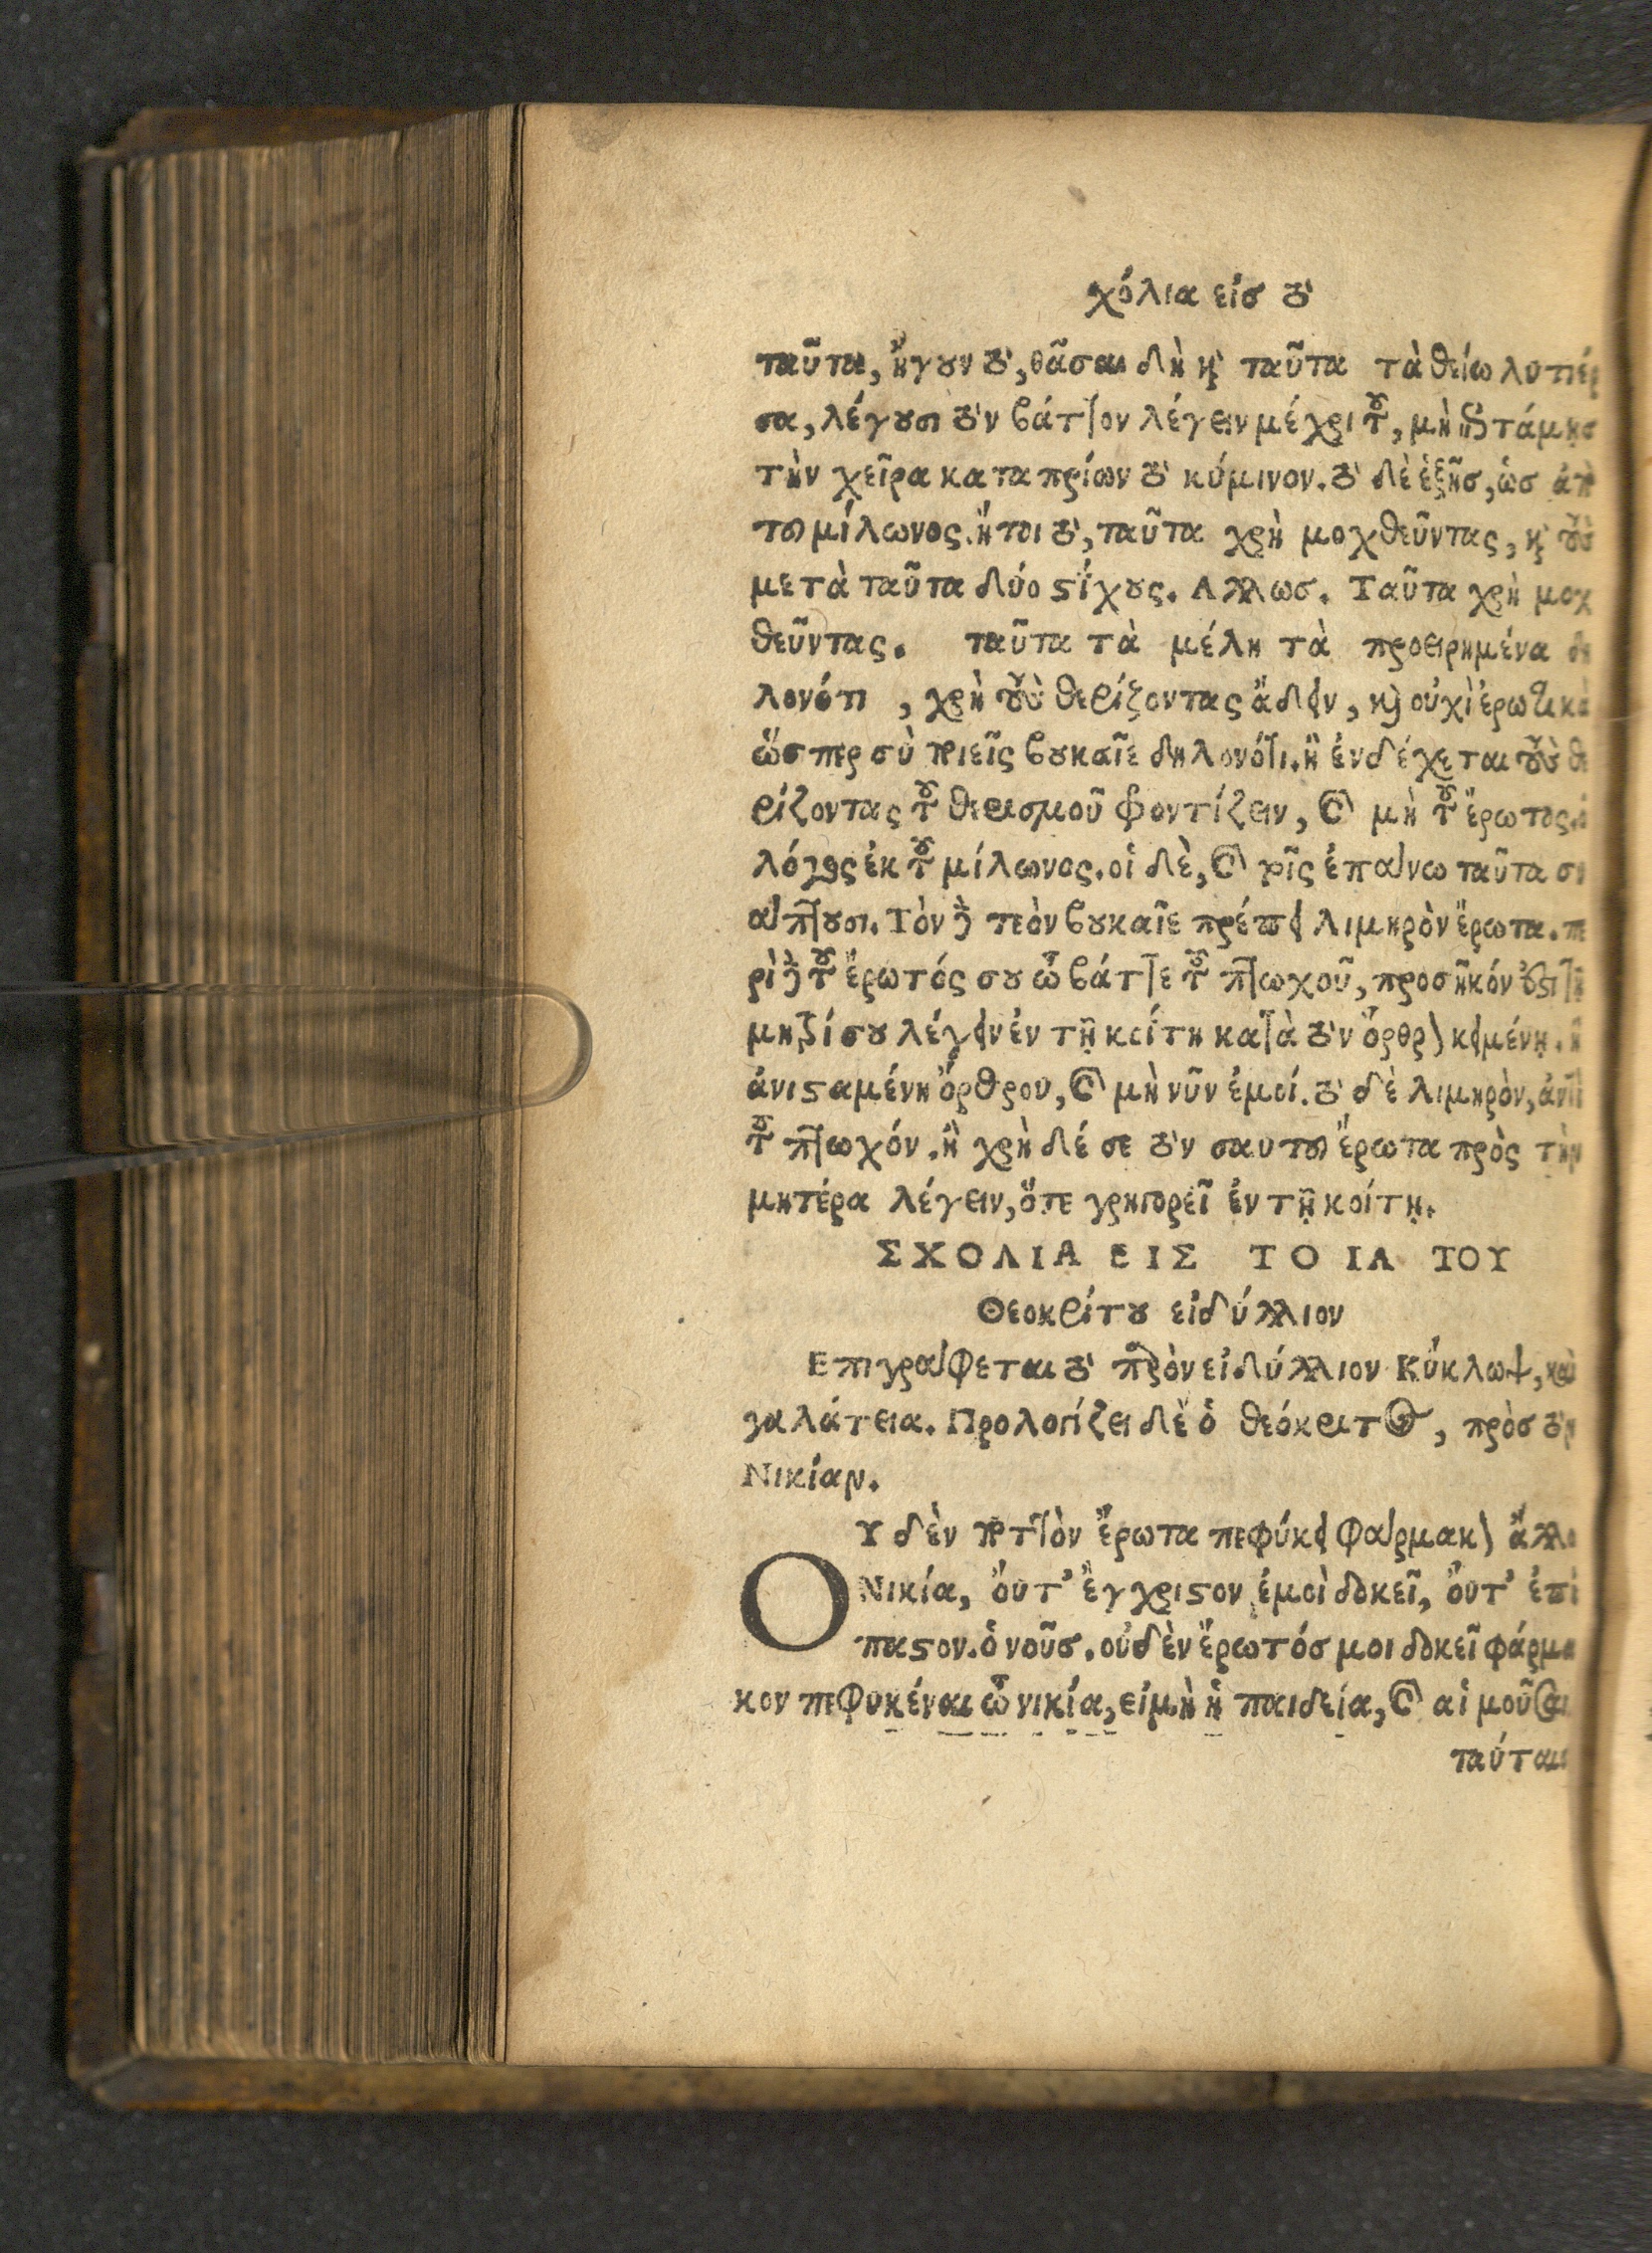 χόλια εἰσ τὸ
ταῦτα, ἤγουν τὸ, θᾶσαι δὴ καὶ ταῦτα τὰ θείω λυτιέρ
σα, λέγουσι τὸν βάττον λέγειν μέχρι τοῦ, μὴ ἐπιτάμῃσ
τὴν χεῖρα καταπρίων τὸ κύμινον. τὸ δὲ ἑξῆσ, ὡσ ἀπὸ
του μίλωνος. ἤτοι τὸ, ταῦτα χρὴ μοχθεῦντας, καὶ τοὺς
μετὰ ταῦτα δύο στίχους. Αλλωσ. Ταῦτα χρὴ μοχ
θεῦντας. ταῦτα τὰ μέλη τὰ προειρημένα δη
λονότι, χρὴ τοὺς θερίζοντας ἄδειν, καὶ οὐχὶ ἐρωτικὰ
ὥσπερ σὺ ποιεῖς βουκαῖε δηλονότι. ἢ ἐνδέχεται τοὺς θε
ρίζοντας τοῦ θερισμοῦ φροντίζειν, καὶ μὴ τοῦ ἔρωτος.
λόγος ἐκ τοῦ μίλωνος. οἱ δὲ, καὶ τοῖς ἐπάνω ταῦτα συ
άπτουσι. Τὸν δὲ τεὸν βουκαῖε πρέπει λιμηρὸν ἔρωτα. πε
ρὶ δὲ τοῦ ἔρωτός σου ὦ βάττε τοῦ πτωχοῦ, προσῆκόν ἐστι τῇ
μητρί σου λέγειν ἐν τῇ κοίτη κατὰ τὸν ὄρθρον κειμένῃ. ἢ
ἀνισταμένη ὄρθρου, καὶ μὴ νῦν ἐμοί. τὸ δὲ λιμηρὸν, ἀντὶ
τοῦ πτωχόν. ἢ χρὴ δέ σε τὸν σαυτου ἔρωτα πρὸς τὴν
μητέρα λέγειν, ὅτε γρηγορεῖ ἐν τῇ κοίτῃ.
ΣΧΟΛΙΑ ΕΙΣ ΤΟ ΙΑ ΤΟΥ
Θεοκρίτου εἰδύλλιον
Επιγράφεται τὸ παρὸν εἰδύλλιον Κύκλωψ, καὶ
γαλάτεια. Προλογίζει δὲ ὁ θεόκριτος, πρὸσ τὸν
Νικίαν.
ΟΥδὲν ποττὸν ἔρωτα πεφύκει φάρμακον ἄλλο
Νικία, ὄυτ' ἔγχριστον ἐμοὶ δοκεῖ, ὄυτ' ἐπί
παστον. ὁ νοῦσ. οὐδὲν ἔρωτόσ μοι δοκεῖ φάρμα
κον πεφυκέναι ὦ νικία, εἰμὴ ἡ παιδεία, καὶ αἱ μοῦσαι
ταύται